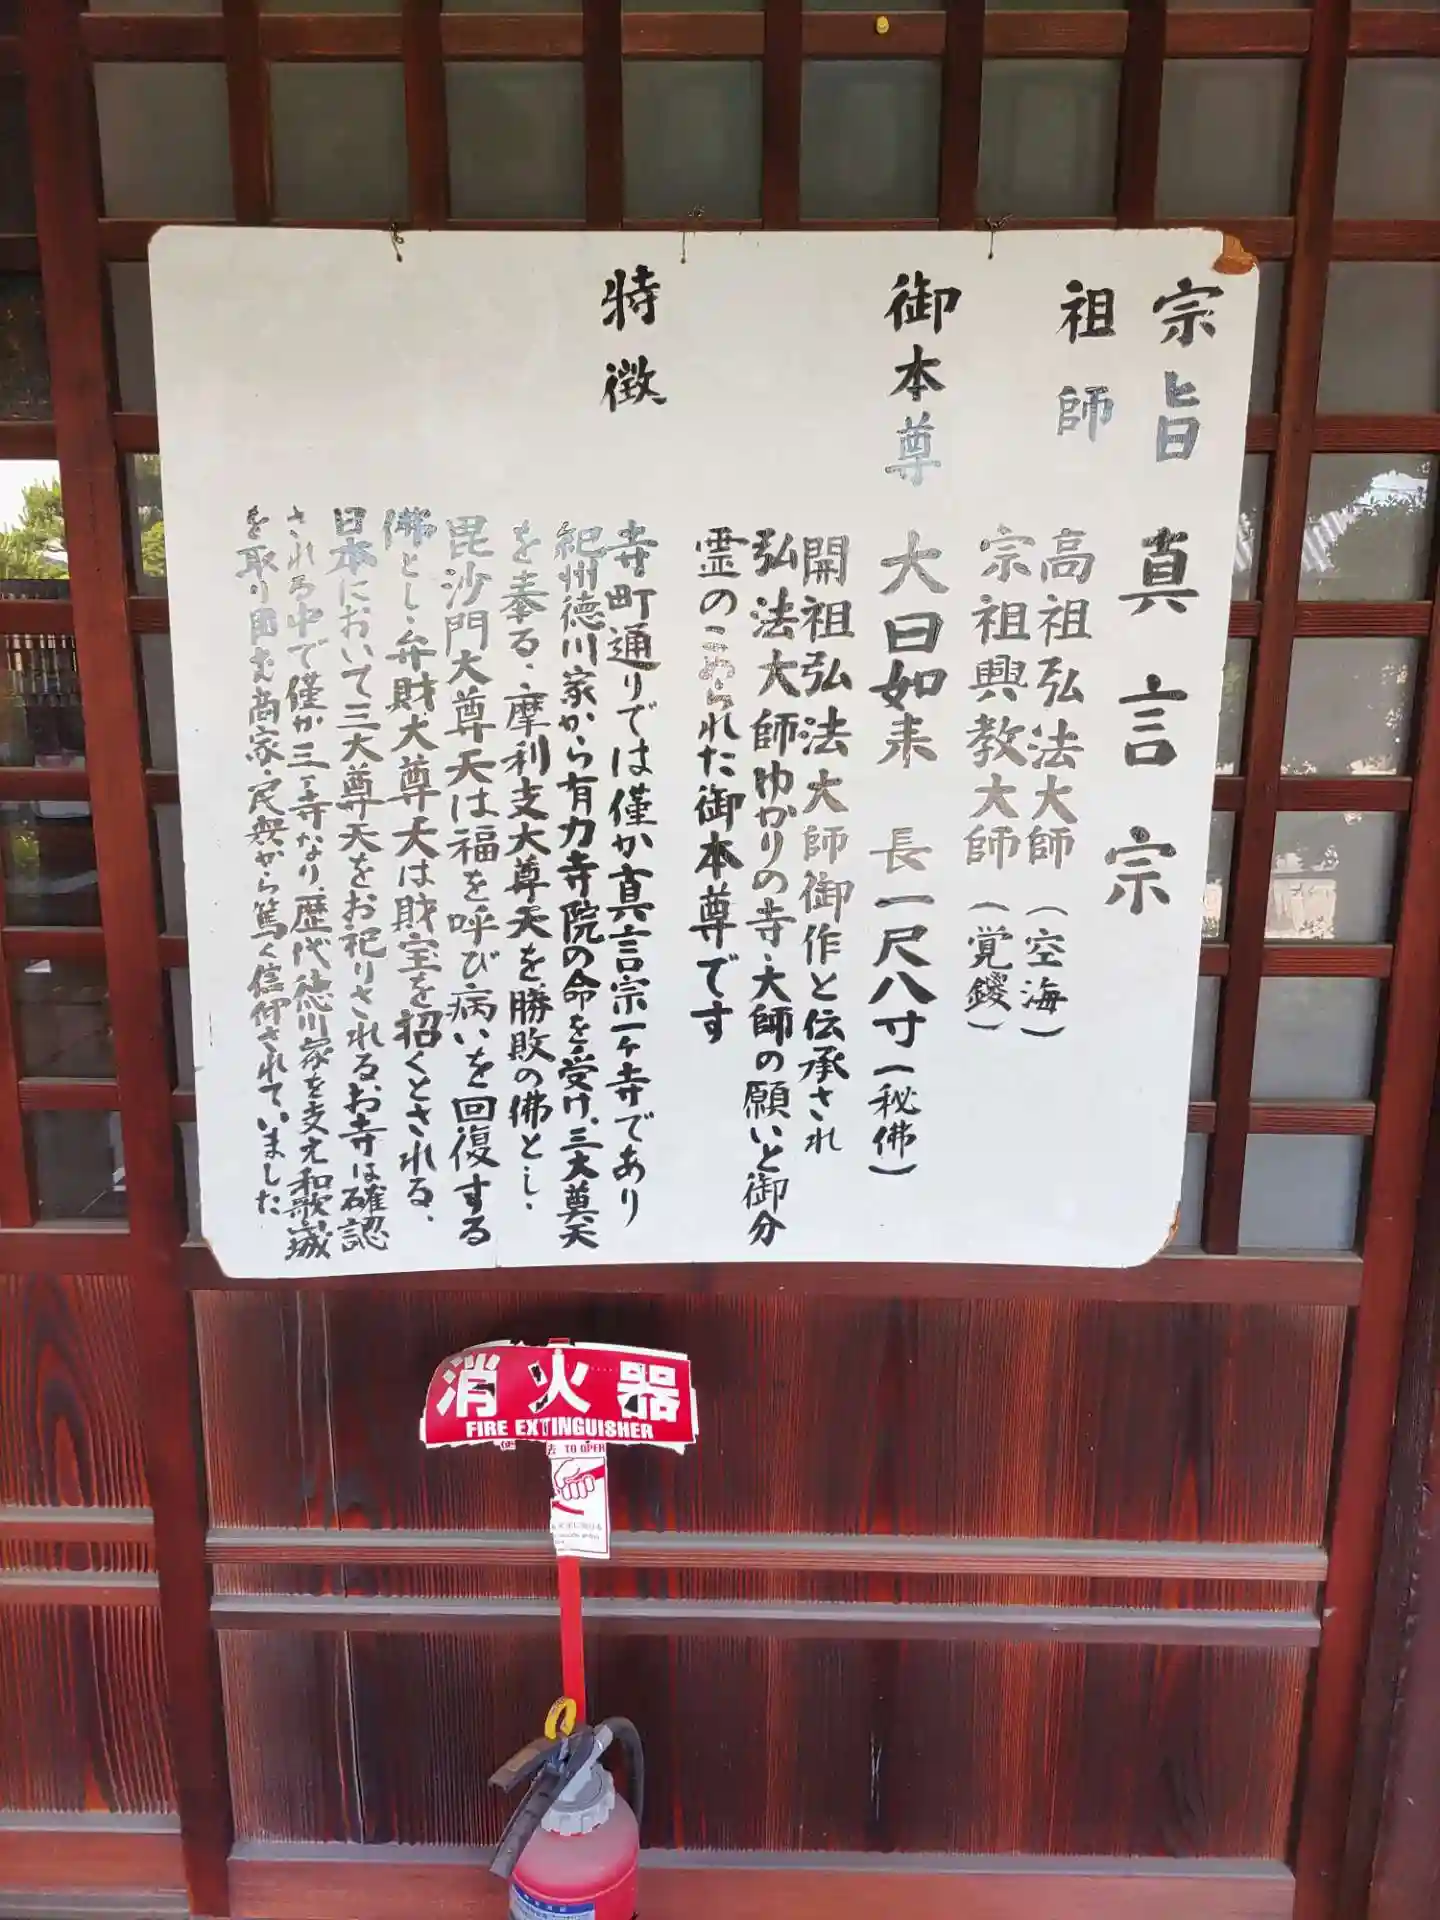 宗旨 真言宗
祖師 高祖弘法大師（空海）
宗祖興教大師（覚鑁）
御本尊 大日如来 長一尺八寸（秘佛）
開祖弘法大師御作と伝承され
弘法大師ゆかりの寺・大師の願いと御分
霊のこめられた御本尊です
特徴 寺町通りでは僅か真言宗一ヶ寺であり
紀州徳川家から有力寺院の命を受け、三大尊天
を奉る、摩利支大尊天を勝敗の佛とし・
毘沙門大尊天は福を呼び病いを回復する
佛とし・弁財大尊天は財宝を招くとされる、
日本において三大尊天をお祀りされるお寺は確認
される中で僅か三ヶ寺なり、歴代徳川家を支え和歌城
を取り囲む商家・民衆から篤く信仰されていました
消火器
FIRE EXTINGUISHER
TO OPER